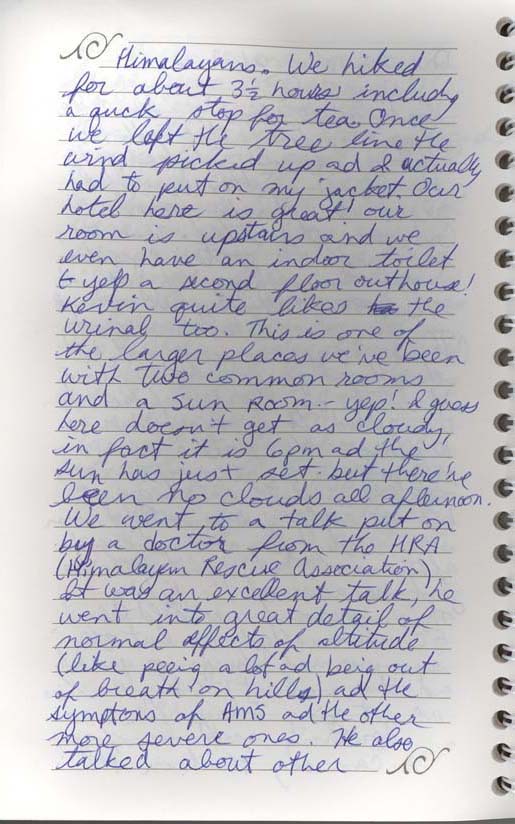 Himalayans. We hiked
for about 3½ hours includg
a quck stop for tea. Once
we left the tree line the
wind picked up ad I actually
had to put on my jacket. Our
hotel here is great! our
room is upstairs and we
even have an indoor toilet
& yep a second floor outhouse!
Kevin quite likes the
urinal too. This is one of
the larger places we've been
with two common rooms
and a SUN ROOM - yep! I guess
here doesn't get as cloudy,
in fact it is 6pm ad the
sun has just set but there've
been no clouds all afternoon.
We went to a talk put on
by a doctor from the HRA
(Himalayan Rescue Association)
It was an excellent talk, he
went into great detail of
normal affects of altitude
(like peeig a lot ad beig out
of breath on hills) ad the
symptons of AMS ad the other
more severe ones. He also
talked about other